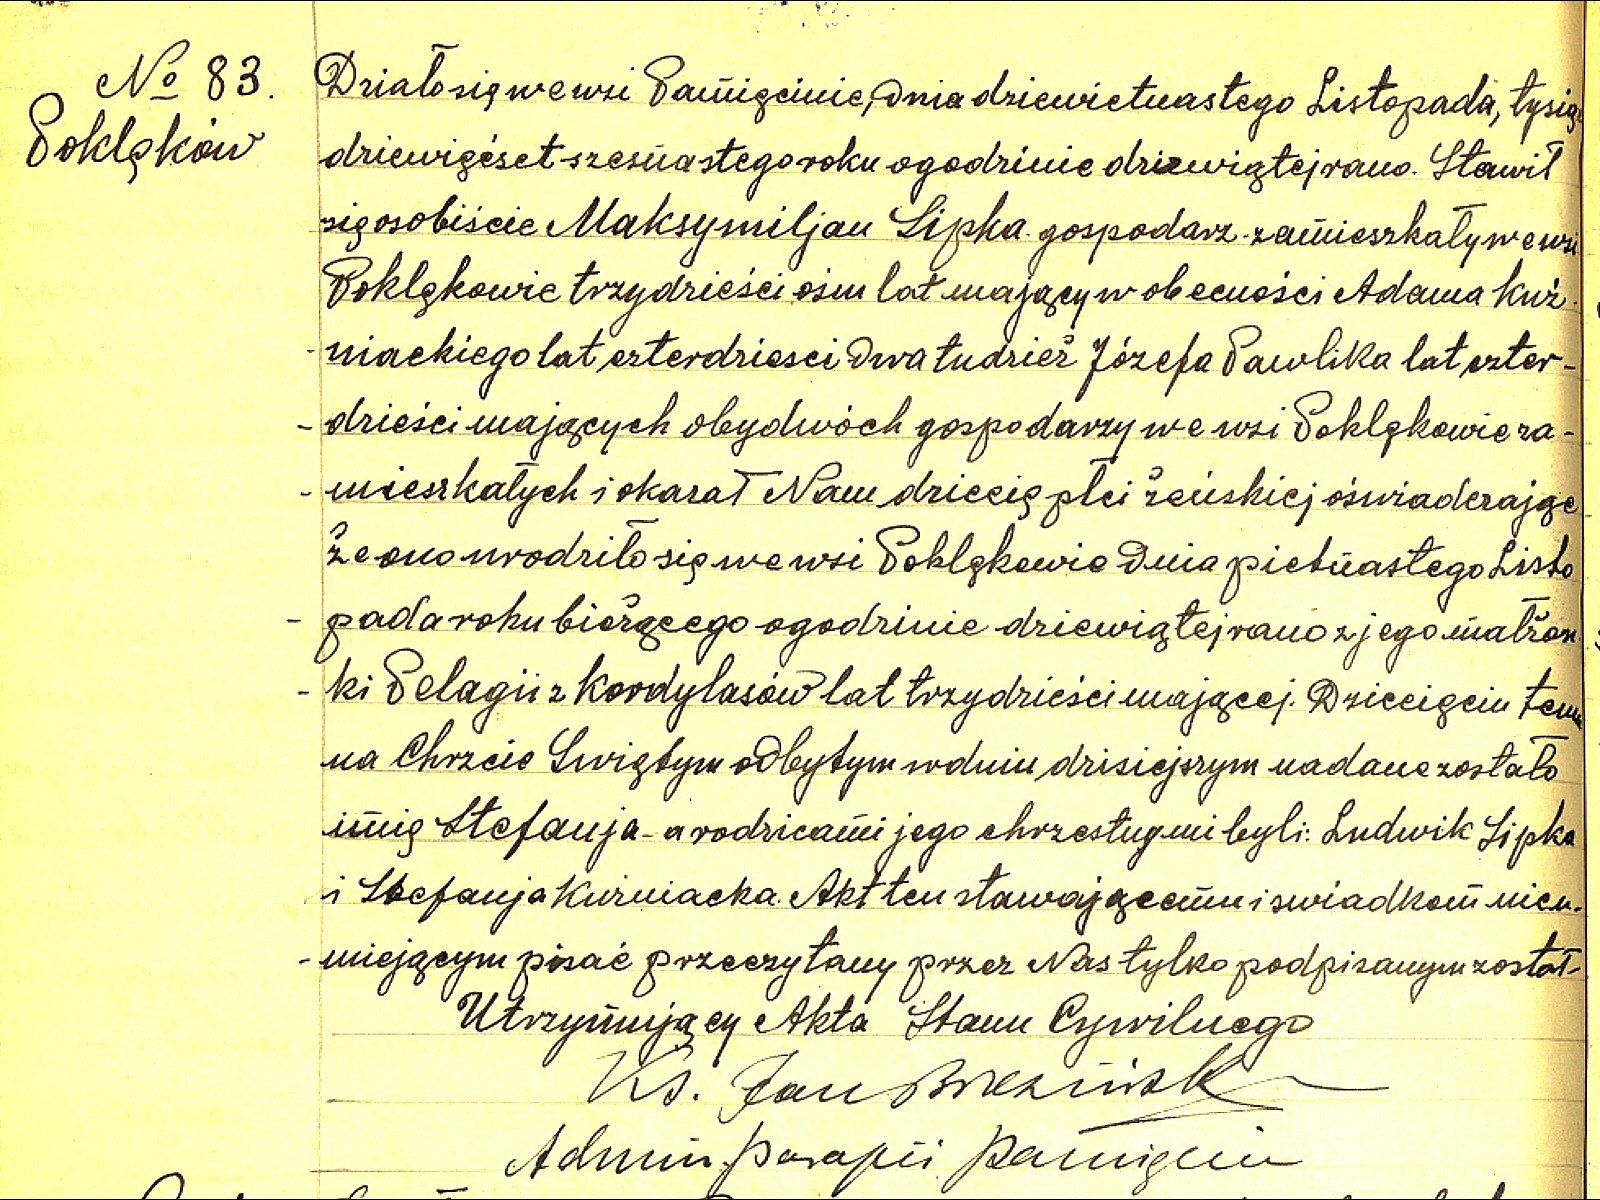 № 83.
Poklęków
Działo się we wsi Pamięcinie, dnia dziewietnastego Listopada, tysiąc
dziewięćset szesnastego roku o godzinie dziewiątej rano. Stawił
się osobiście Maksymiljan Lipka gospodarz zamieszkały we wsi
Poklękowie trzydzieści ośm lat mający w obecności Adama Kuź-
niackiego lat czterdziesci dwa tudzież Józefa Pawlika lat czter-
- dzieści mających obydwóch gospodarzy we wsi Poklękowie za-
- mieszkałych i okazał Nam dziecię płci żeńskiej oświadczając
że ono urodziło się we wsi Poklękowie dnia pietnastego Listo
- pada roku bieżącego o godzinie dziewiątej rano z jego małżon
- ki Pelagii z Kordylasów lat trzydzieści mającej. Dziecięciu temu
na Chrzcie Swiętym odbytym w dniu dzisiejszym nadane zostało
imię Stefanja - a rodzicami jego chrzestnymi byli: Ludwik Lipka
i Stefanja Kuźniacka. Akt ten stawającemu i swiadkom nieu-
- miejącym pisać przeczytany przez Nas tylko podpisanym został-
Utrzymujący Akta Stanu Cywilnego
Ks. Jan Brzeziński
Admin. parafii Pamięcin